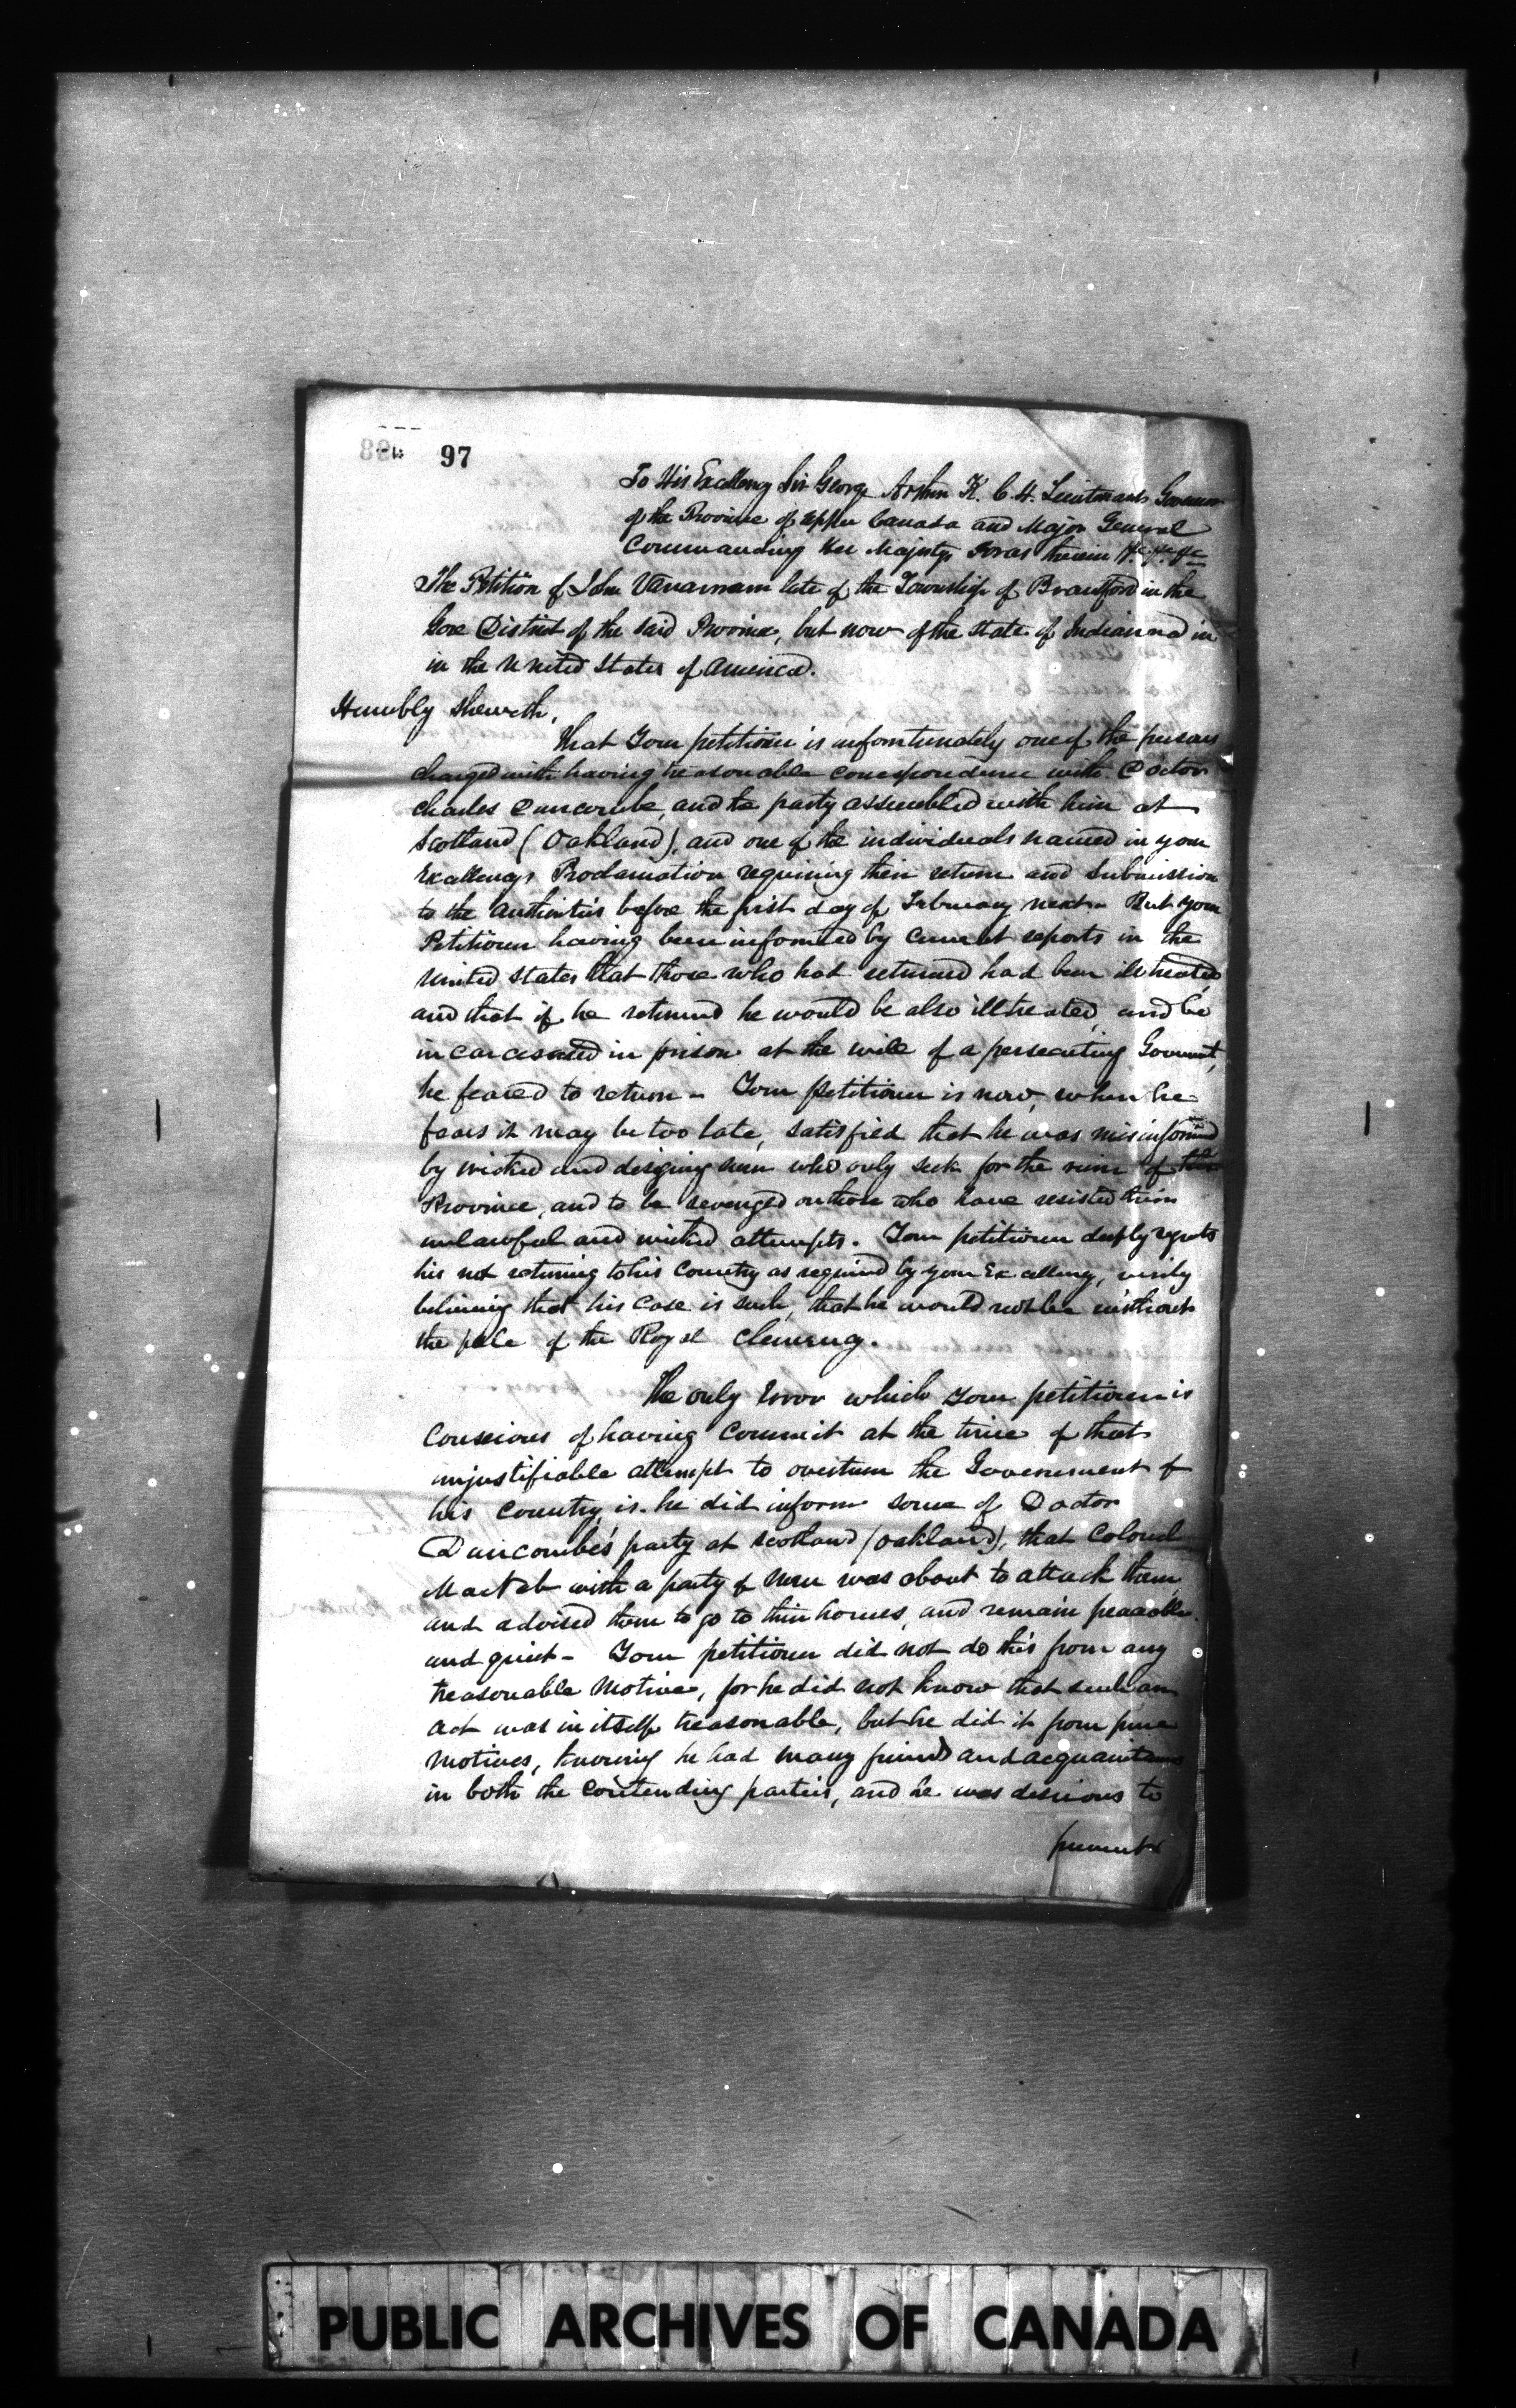 97
To His Excellency Sir George Arthur K. C. H. Lieutenant Governor
of the Province of Upper Canada and Major General
Commanding Her Majestys Forces therein &c. &c. &c
The Petition of John Vanarnam late of the Township of Brantford in the
Gore District of the said Province, but now of the State of Indianna in
in the United States of America.
Humbly Sheweth,
That Your petitioner is unfortunately one of the persons
charged with having treasonable correspondence with Doctor
Charles Duncombe, and the party assembled with him at
Scotland (Oakland), and one of the individuals named in your
Excellencys Proclamation requiring their return and submission
to the Authorities before the first day of February next - But your
Petitioner having been informed by current reports in the
United States that those who had returned had been illtreated
and that if he returned he would be also illtreated, and be
incarcerated in prison at the will of a persecuting Government,
he feared to return - Your petitioner is now, when he
fears it may be too late, satisfied that he was misinformed
by wicked and designing men who only seek for the ruin of this
Province, and to be revenged on those who have resisted their
unlawful and wicked attempts. Your petitioner deeply regrets
his not returning to his Country as required by your Excellency, verily
believing that his case is such, that he would not be without
the pale of the Royal Clemency.
The only Error which Your petitioner is
Conscious of having Commit at the time of that
unjustifiable attempt to overturn the Government of
his Country, is. he did inform some of Doctor
Duncombe's party at Scotland (Oakland), that Colonel
MacNab with a party of men was about to attack them,
and advised them to go to their homes, and remain peaceable
and quiet - Your petitioner did not do this from any
treasonable motive, for he did not know that such an
act was in itself treasonable, but he did it from pure
motives, knowing he had many friends and acquaintances
in both the contending parties, and he was desirous to
prevent
PUBLIC ARCHIVES OF CANADA